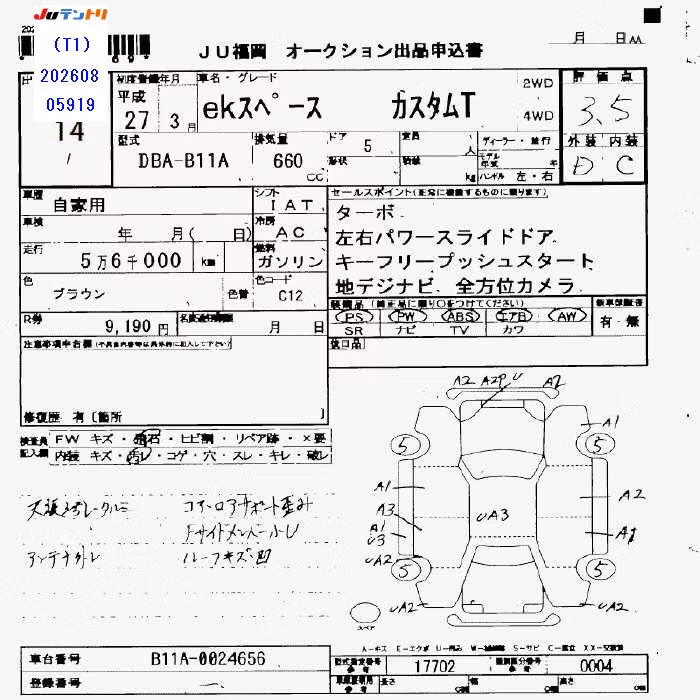 JUテントリ
(T1)
202608
05919
JU福岡 オークション出品申込書
月 日
14
初度登録年月
平成
27 3月
車名・グレード
ekスペース カスタムT
2WD
4WD
評価点
3.5
外装 内装
D C
型式
DBA-B11A
排気量
660
CC
ドア
5
形状
定員
人
積載
kg
ディーラー・並行
モデル年式 年
ハンドル 左・右
車歴
自家用
シフト
IAT
車検
年 月( 日)
冷房
AC
走行
5万6千000 km
燃料
ガソリン
色
ブラウン
色替
色コード
C12
セールスポイント(正常に機能するものに限ります)
ターボ
左右パワースライドドア
キーフリープッシュスタート
地デジナビ 全方位カメラ
装備品(純正品に限り○をつけてください)
PS PW ABS エアB AW
SR ナビ TV カワ
新車保証書
有・無
R券
9,190円
名義変更期限
月 日
後日品
注意事項申告欄
修復歴 有〔箇所 〕
検査員記入欄
FW キズ・飛石・ヒビ割・リペア跡・×要
内装 キズ・汚レ・コゲ・穴・スレ・キレ・破レ
アンテナ
ルーフキズ凹
A2 A2P U A2
A1
5 5
A1 A2
A3
UA3
A1
U3 A1
UA2
5 5
UA2 A2
スペア
A-キズ E-エクボ U-凹み S-サビ C-腐立 XX-交換済
車台番号
B11A-0024656
登録番号
型式指定番号
参考
17702
類別区分番号
参考
0004
長さ cm 幅 cm 高さ cm